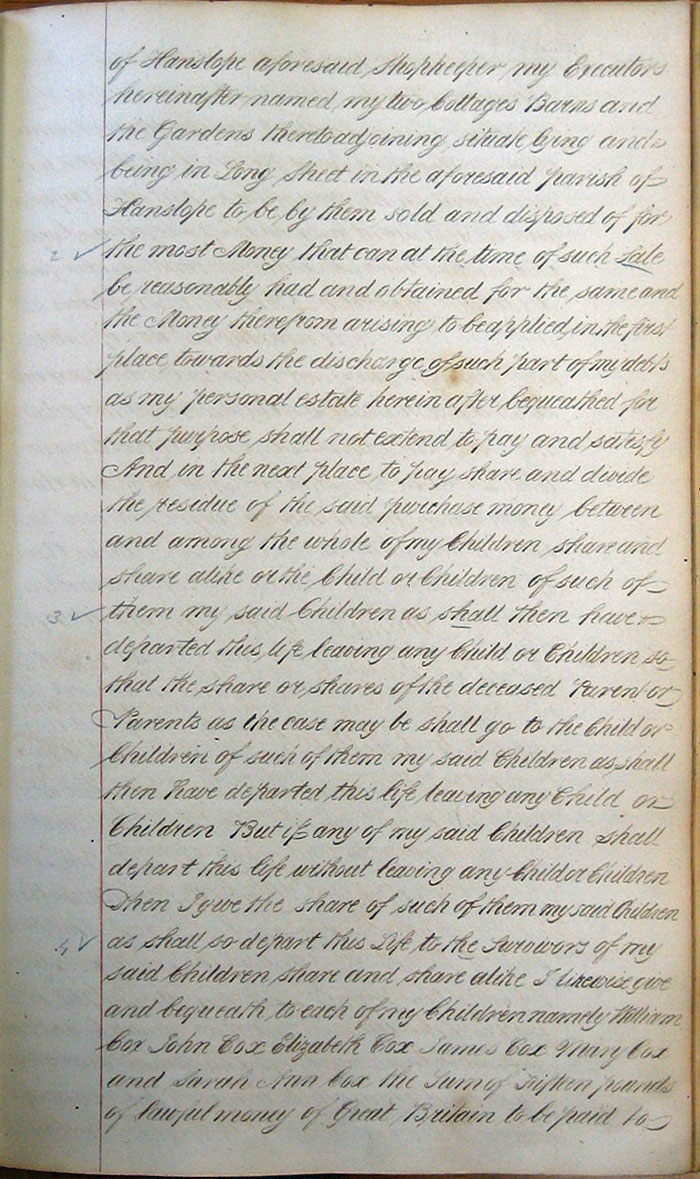 of Hanslope aforesaid Shopkeeper my Executors
hereinafter named my two Cottages Barns and
the Gardens thereto adjoining situate lying and
being in Long Street in the aforesaid parish of
Hanslope to be by them sold and disposed of for
2 ✓ the most Money that can at the time of such Sale
be reasonably had and obtained for the same and
the Money therefrom arising to be applied in the first
place towards the discharge of such part of my debts
as my personal estate herein after bequeathed for
that purpose shall not extend to pay and satisfy
And in the next place to pay share and divide
the residue of the said purchase money between
and among the whole of my Children share and
share alike or the Child or Children of such of
3 ✓ them my said Children as shall then have
departed this life leaving any Child or Children so
that the share or shares of the deceased Parent or
Parents as the case may be shall go to the Child or
Children of such of them my said Children as shall
then have departed this life leaving any Child or
Children But if any of my said Children shall
depart this life without leaving any Child or Children
Then I give the share of such of them my said Children
4 ✓ as shall so depart this Life to the Survivors of my
said Children share and share alike I likewise give
and bequeath to each of my Children namely William
Cox John Cox Elizabeth Cox James Cox Mary Cox
and Sarah Ann Cox the Sum of Fifteen pounds
of lawful money of Great Britain to be paid to